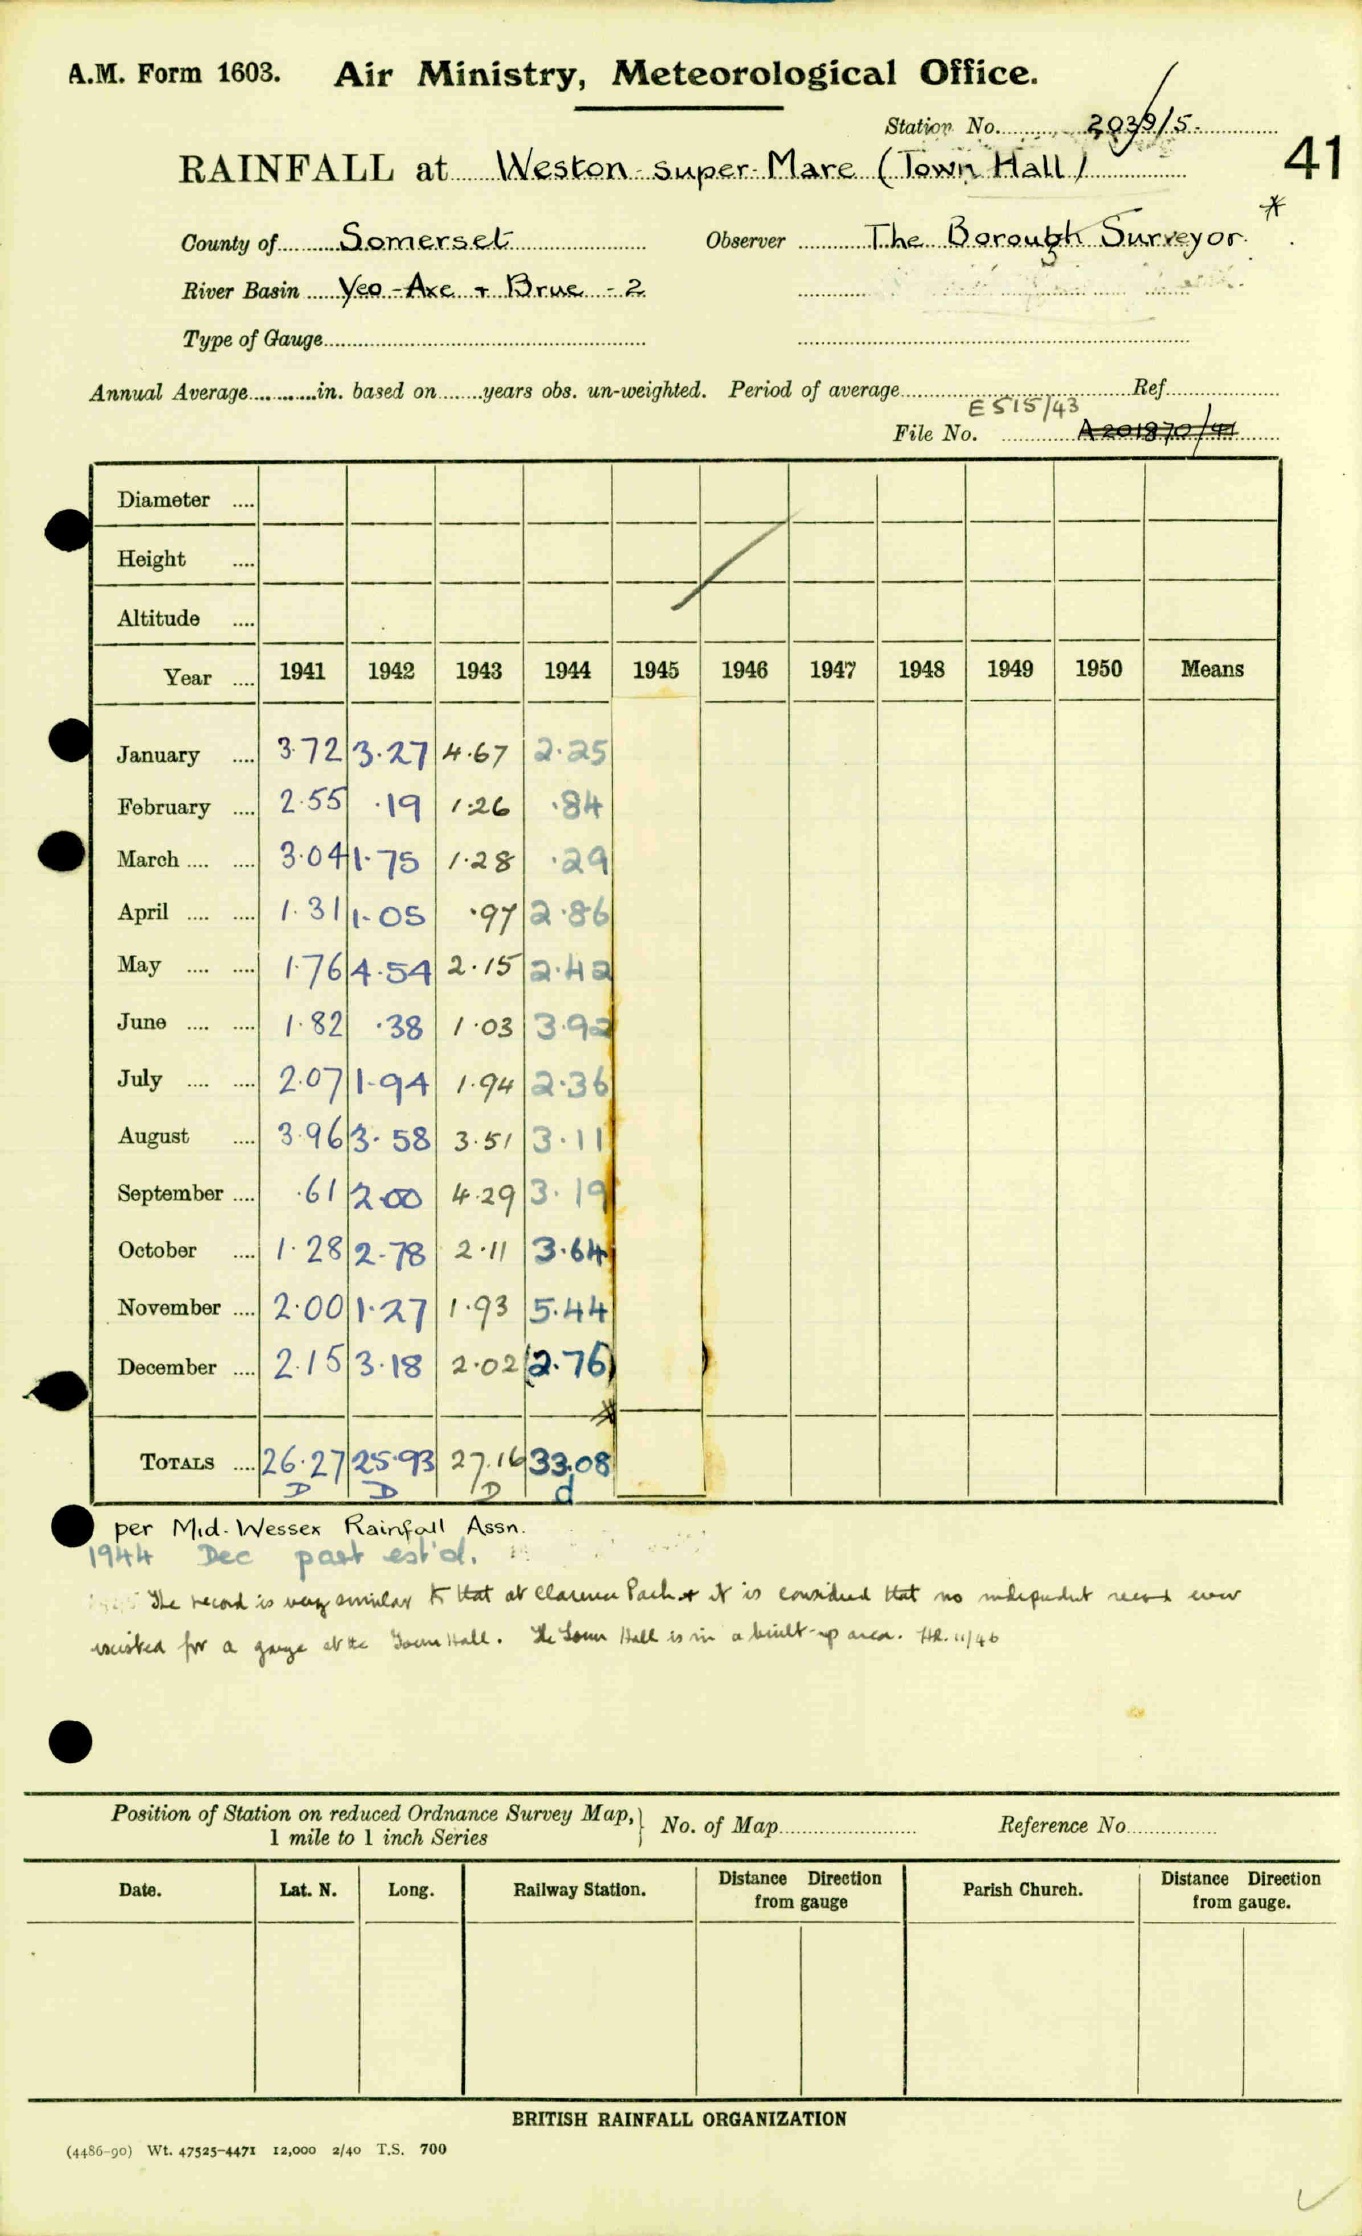 A.M. Form 1603. Air Ministry, Meteorological Office.
Station No. 2039/5.
41
RAINFALL at Weston-super-Mare (Town Hall)
*
County of Somerset Observer The Borough Surveyor.
River Basin Yeo-Axe + Brue - 2
Type of Gauge
Annual Average in. based on years obs. un-weighted. Period of average Ref.
E 515/43
File No. A201870/41
Diameter ....
Height ....
Altitude ....
Year .... 1941 1942 1943 1944 1945 1946 1947 1948 1949 1950 Means
January .... 3.72 3.27 4.67 2.25
February .... 2.55 .19 1.26 .84
March .... .... 3.04 1.75 1.28 .29
April .... .... 1.31 1.05 .97 2.86
May .... .... 1.76 4.54 2.15 2.42
June .... .... 1.82 .38 1.03 3.92
July .... .... 2.07 1.94 1.94 2.36
August .... 3.96 3.58 3.51 3.11
September .... .61 2.00 4.29 3.19
October .... 1.28 2.78 2.11 3.64
November .... 2.00 1.27 1.93 5.44
December .... 2.15 3.18 2.02 (2.76)
*
TOTALS .... 26.27 25.93 27.16 33.08
D D D d
per Mid-Wessex Rainfall Assn.
1944 Dec part est'd.
The record is very similar to that at Clarence Park & it is considered that no independent record ever
existed for a gauge at the Town Hall. The Town Hall is in a built-up area. 11/46
Position of Station on reduced Ordnance Survey Map, } No. of Map Reference No.
1 mile to 1 inch Series
Date. Lat. N. Long. Railway Station. Distance Direction from gauge Parish Church. Distance Direction from gauge.
BRITISH RAINFALL ORGANIZATION
(4486-90) Wt. 47525-4471 12,000 2/40 T.S. 700